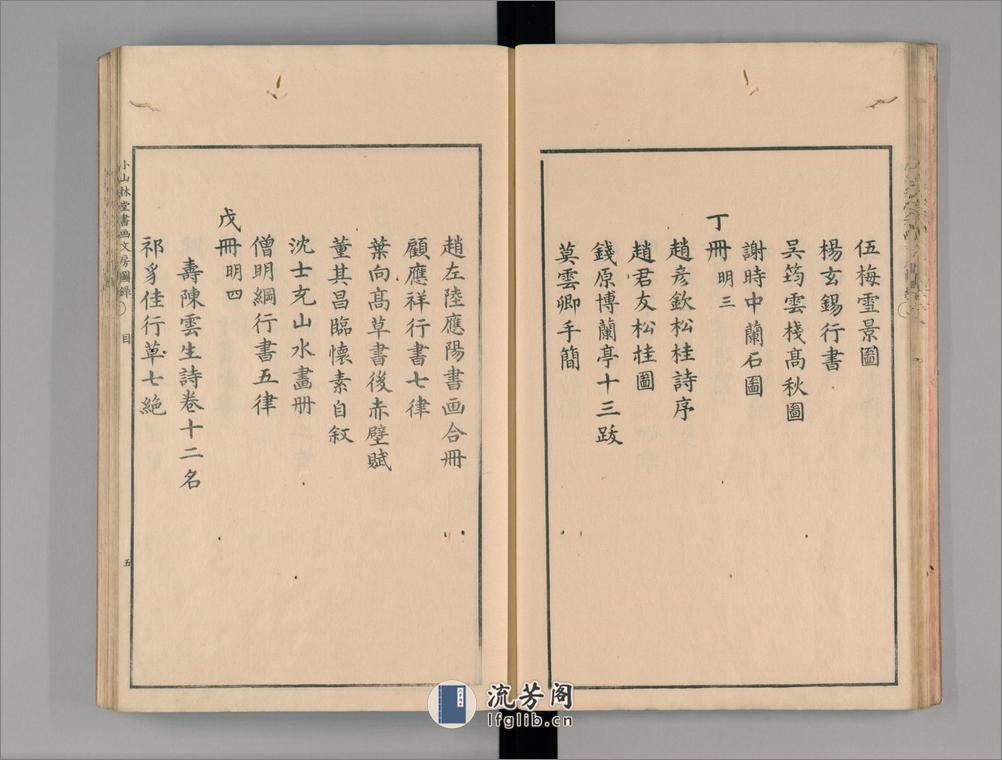 伍梅雪景圖
楊玄錫行書
吳筠雲棧髙秋圖
謝時中蘭石圖
丁冊 明三
趙彦欽松桂詩序
趙君友松桂圖
錢原博蘭亭十三跋
莫雲卿手簡
趙左陸應陽書画合冊
顧應祥行書七律
葉向髙草書後赤壁賦
董其昌臨懷素自叙
沈士充山水畫册
僧明綱行書五律
戊冊 明四
壽陳雲生詩卷十二名
祁豸佳行草七絶
小山林堂書画文房圖錄
目
五
流芳阁
lfglib.cn